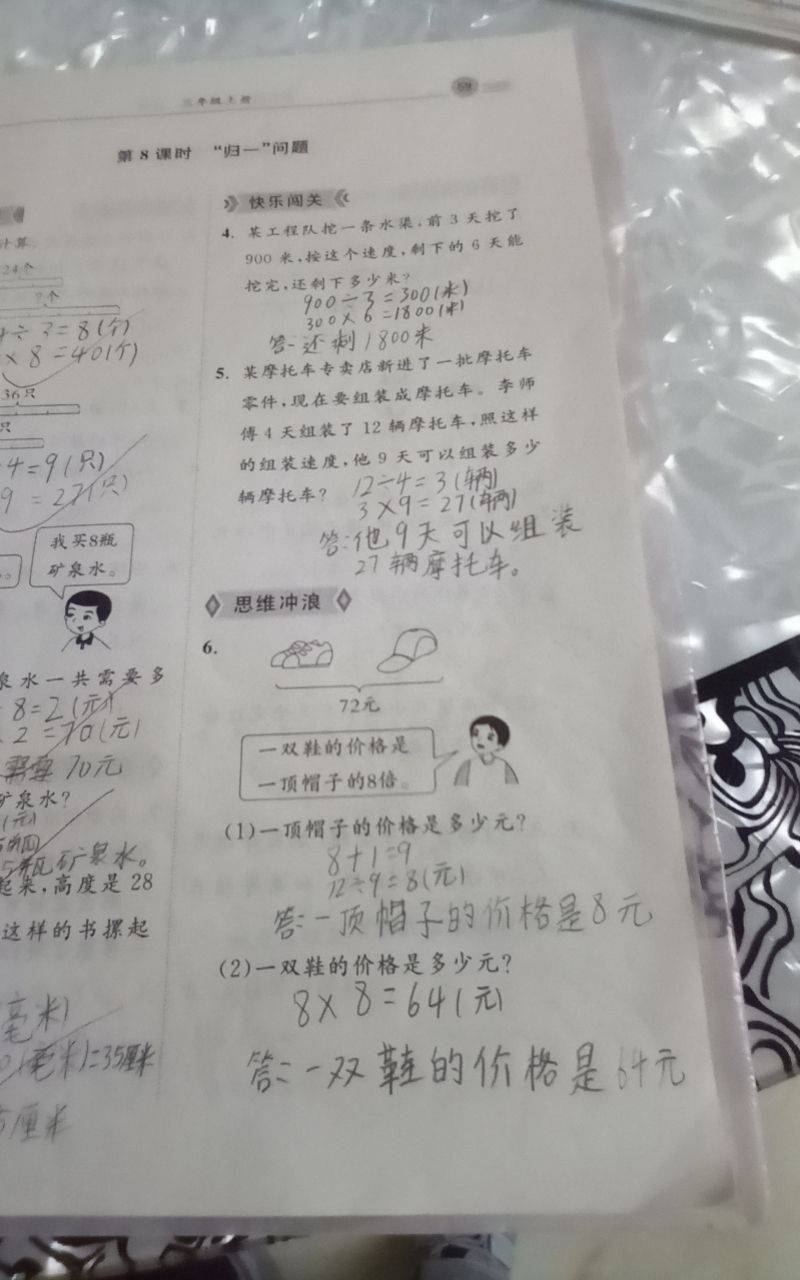 三年级上册
59
第8课时 “归一”问题
计算。
24个
?个
÷3=8(个)
×8=40(个)
36只
只
4=9(只)
9=27(只)
我买8瓶
矿泉水。
泉水一共需要多
8=2(元)
2=70(元)
需要70元
矿泉水?
(元)
矿泉水。
起来,高度是28
这样的书摞起
毫米)
(毫米)=35厘米
厘米
快乐闯关
4. 某工程队挖一条水渠,前3天挖了
900米,按这个速度,剩下的6天能
挖完,还剩下多少米?
900÷3=300(米)
300×6=1800(米)
答:还剩1800米
5. 某摩托车专卖店新进了一批摩托车
零件,现在要组装成摩托车。李师
傅4天组装了12辆摩托车,照这样
的组装速度,他9天可以组装多少
辆摩托车?
12÷4=3(辆)
3×9=27(辆)
答:他9天可以组装
27辆摩托车。
思维冲浪
6.
72元
一双鞋的价格是
一顶帽子的8倍。
(1)一顶帽子的价格是多少元?
8+1=9
12÷9=8(元)
答:一顶帽子的价格是8元
(2)一双鞋的价格是多少元?
8×8=64(元)
答:一双鞋的价格是64元